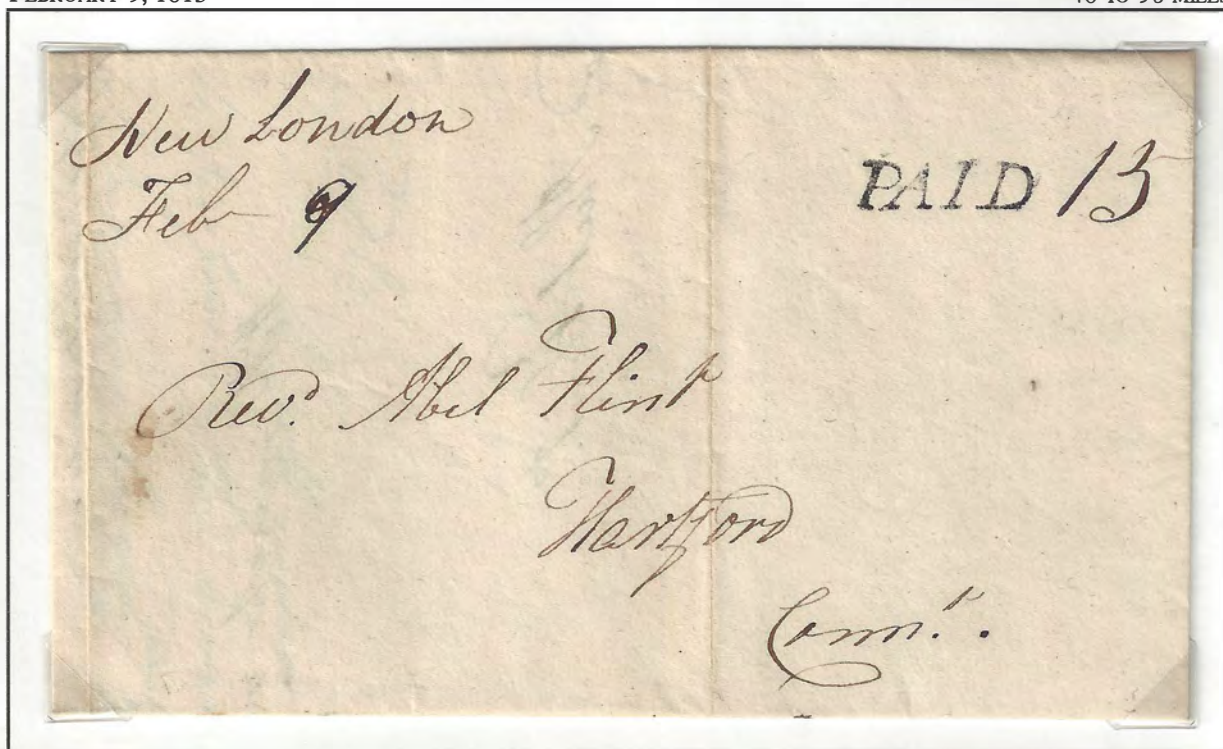 New London
Feb 9
PAID 15
Revd. Abel Flint
Hartford
Connt.